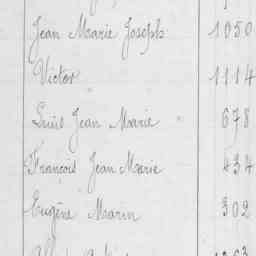 Jean Marie Joseph 1050
Victor 1114
Louis Jean Marie 678
François Jean Marie 434
Eugène Marin 302